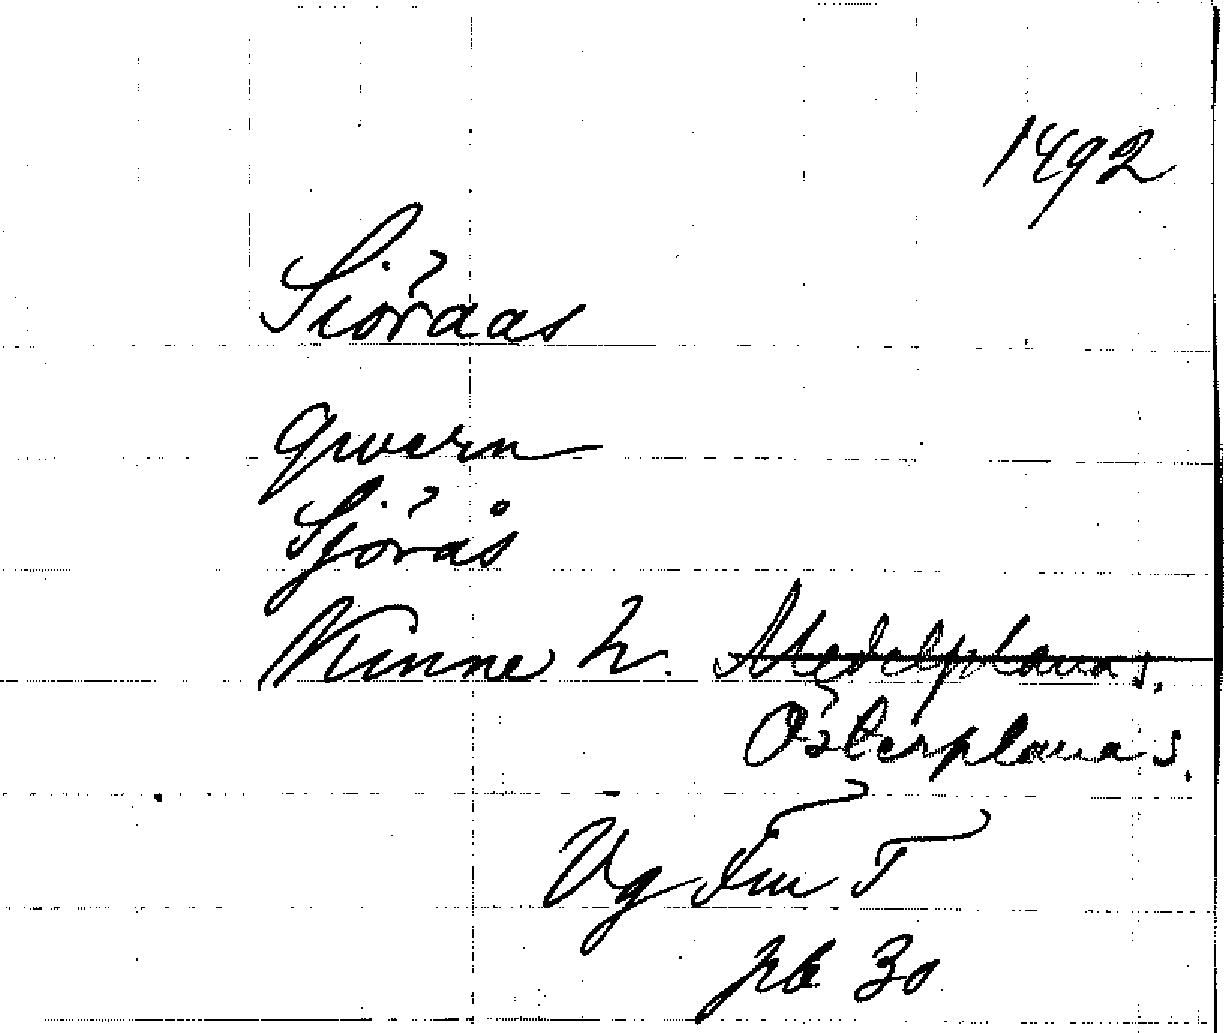 1492
Siöraas
qwern
Sjörås
Kinne h. Medelplana s.
Österplana s.
Vg Fru T
pb 30